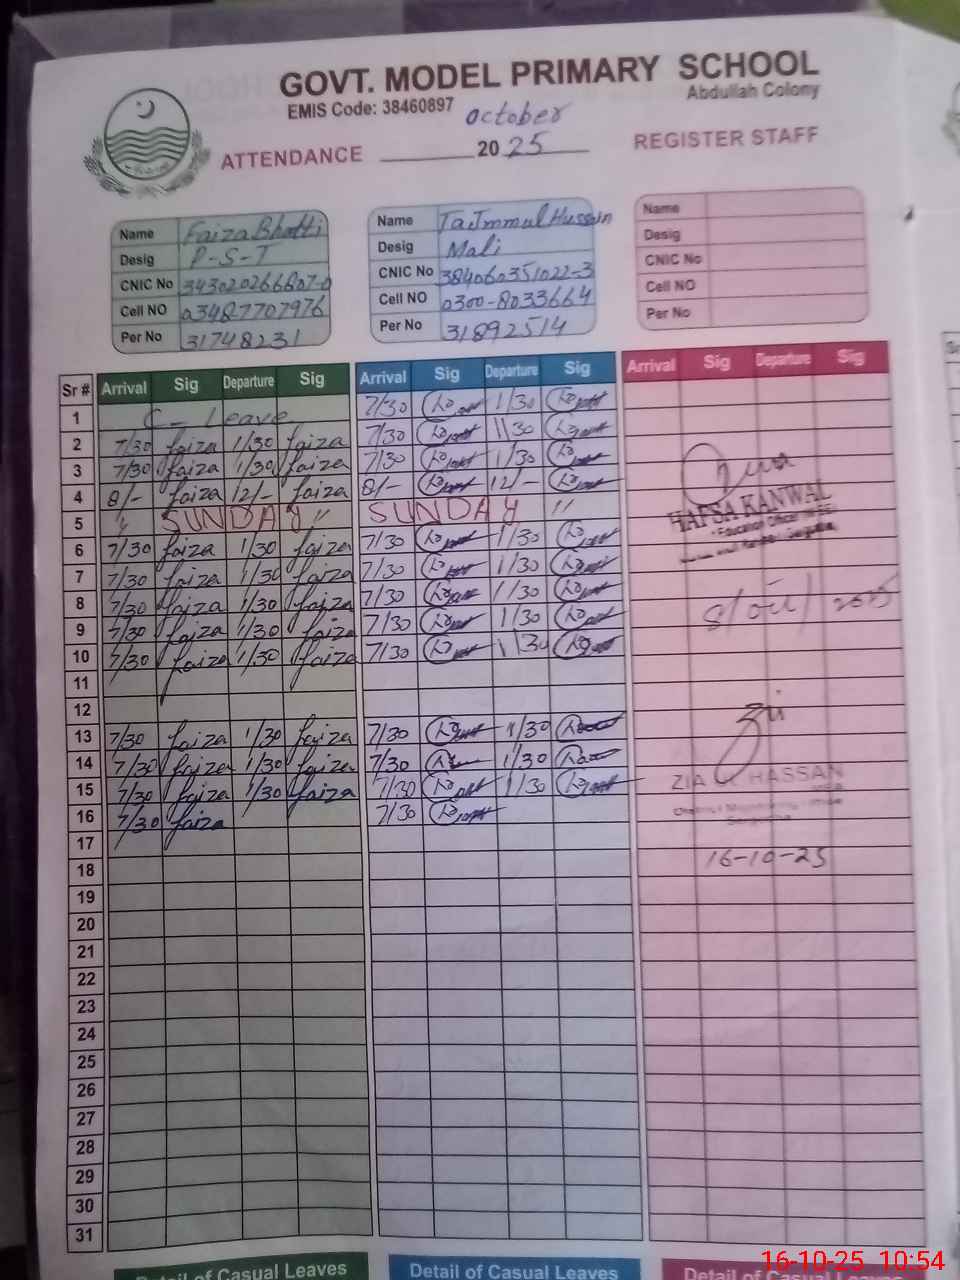 GOVT. MODEL PRIMARY SCHOOL
Abdullah Colony
EMIS Code: 38460897
October
ATTENDANCE 2025 REGISTER STAFF
Name Faiza Bhatti
Desig P-S-T
CNIC No 343020266807-0
Cell NO 03487707976
Per No 31748231
Name Tajmmul Hussain
Desig Mali
CNIC No 384060351022-3
Cell NO 0300-8033664
Per No 31892514
Name
Desig
CNIC No
Cell NO
Per No
Sr # Arrival Sig Departure Sig Arrival Sig Departure Sig Arrival Sig Departure Sig
1 C- Leave 7/30 1/30
2 7/30 faiza 1/30 faiza 7/30 1/30
3 7/30 faiza 1/30 faiza 7/30 1/30
4 8/- faiza 12/- faiza 8/- 12/-
5 " SUNDAY " SUNDAY "
6 7/30 faiza 1/30 faiza 7/30 1/30
7 7/30 faiza 1/30 faiza 7/30 1/30
8 7/30 faiza 1/30 faiza 7/30 1/30
9 7/30 faiza 1/30 faiza 7/30 1/30
10 7/30 faiza 1/30 faiza 7/30 1/30
11
12
13 7/30 faiza 1/30 faiza 7/30 1/30
14 7/30 faiza 1/30 faiza 7/30 1/30
15 7/30 faiza 1/30 faiza 7/30 1/30
16 7/30 faiza 7/30
17
18
19
20
21
22
23
24
25
26
27
28
29
30
31
HAFSA KANWAL
Education Officer
ZIA HASSAN
16-10-25
Detail of Casual Leaves
Detail of Casual Leaves
Detail of Casual Leaves
16-10-25 10:54